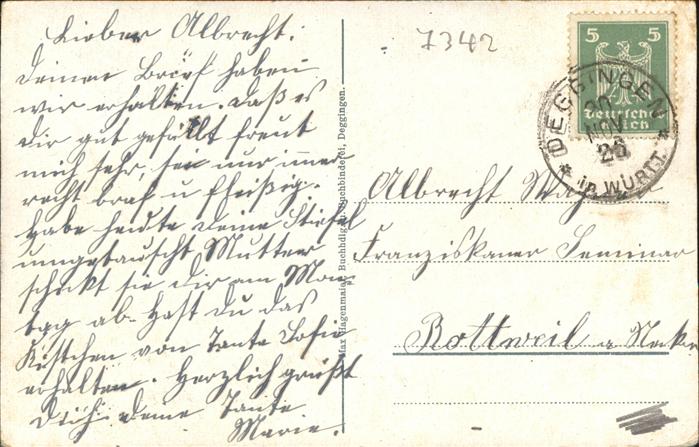 Lieber Albrecht!
Deinen Brief haben
wir erhalten. Daß es
Dir gut gefällt freut
mich sehr, sei nur immer
recht brav u fleißig.
Habe heute deine Stiefel
umgetauscht Mutter
schickt sie dir am Mon-
tag ab. Hast Du das
Kistchen von Tante Sofie
erhalten. Herzlich grüßt
Dich deine Tante
Marie.
Max Hagenmaier, Buchhdlg. u. Buchbinderei, Deggingen.
7342
5 5
Deutsches
Reich
DEGGINGEN
30
NOV
26
* in WÜRTT. *
Albrecht
Franziskaner Seminar
Rottweil a Neckar